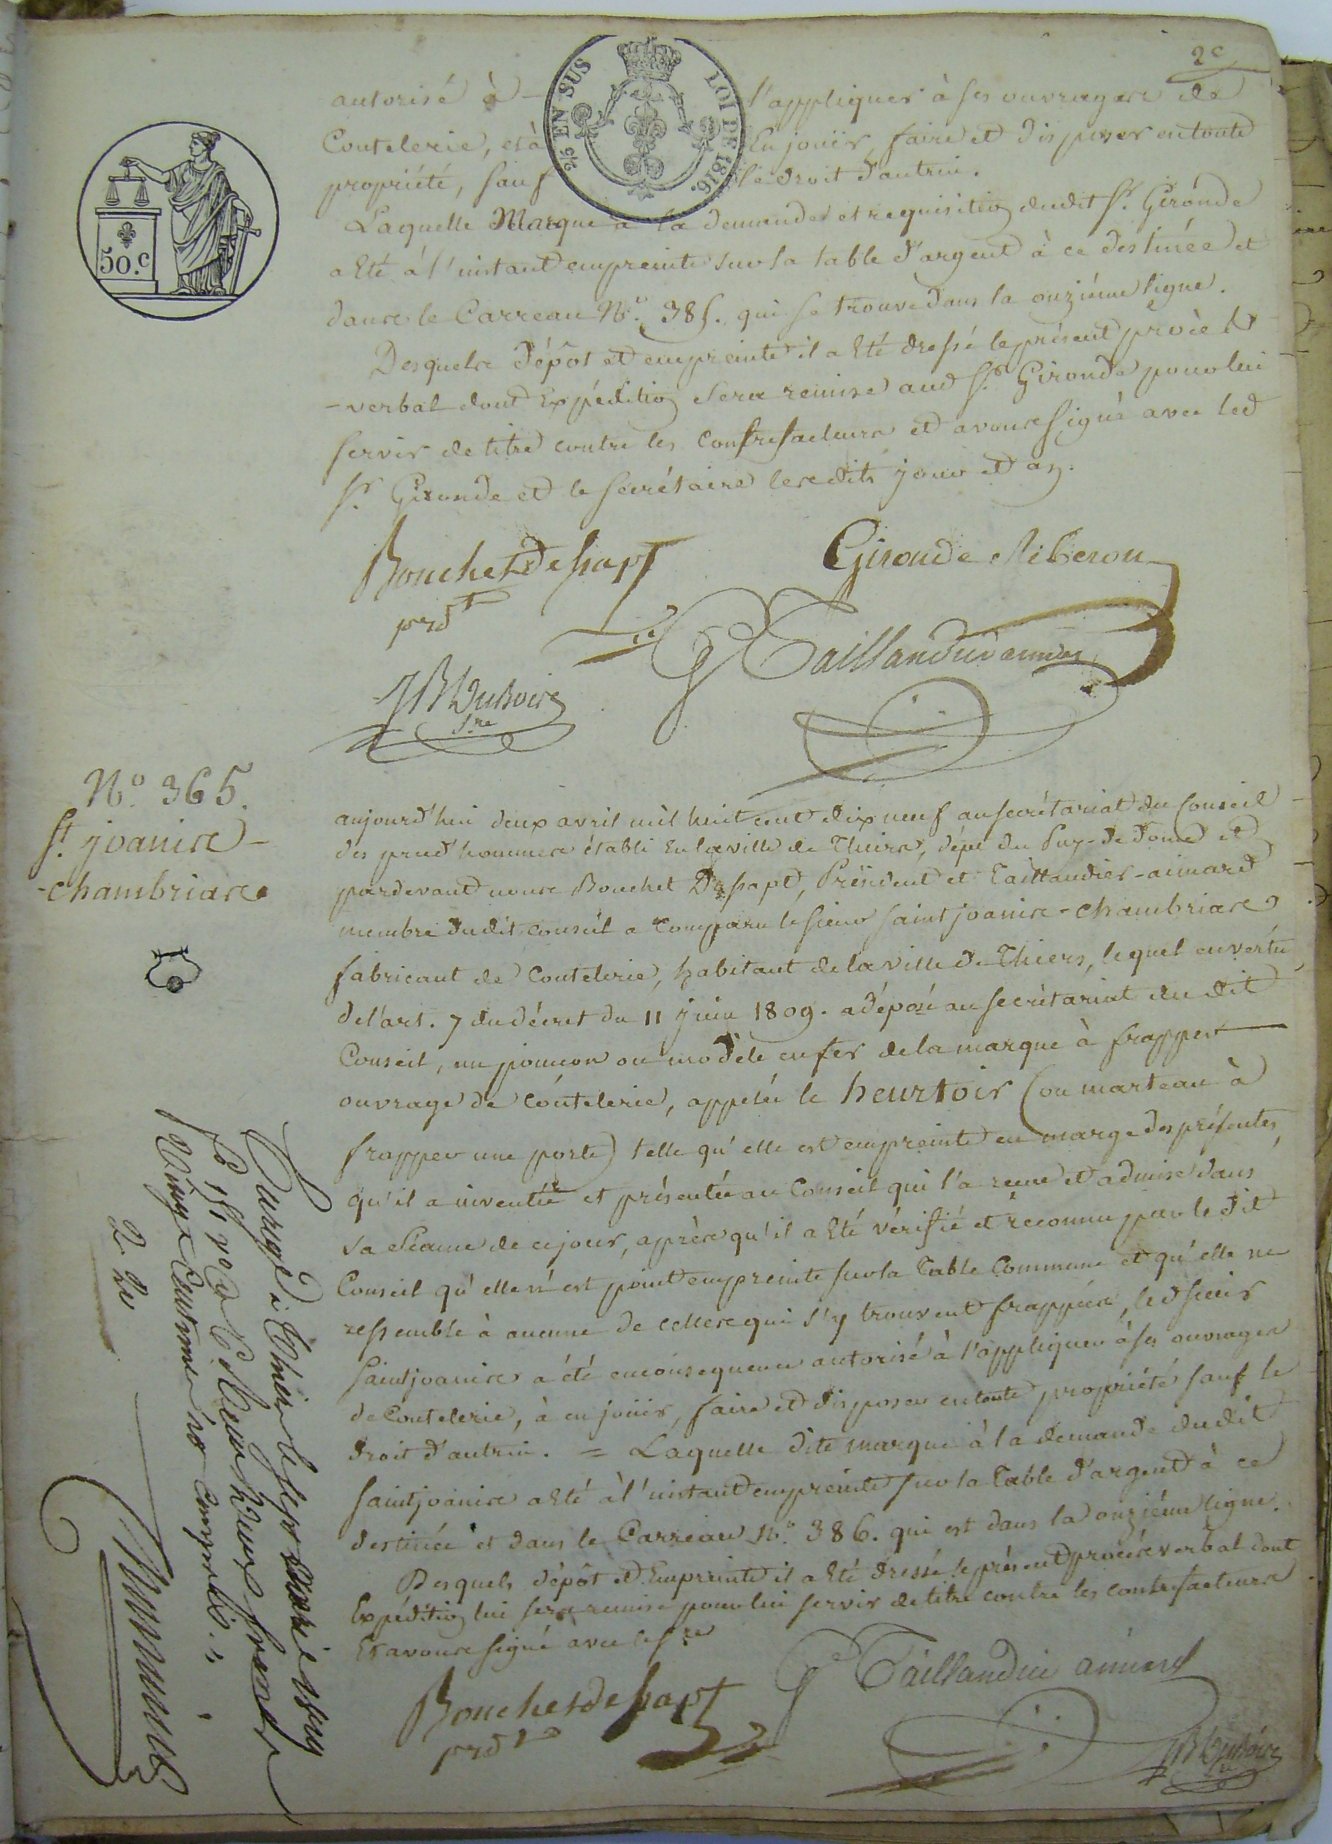 2e
2/5 EN SUS LOI DE 1816.
50.c
autorisé à l'appliquer à ses ouvrages de
Coutelerie, et à En jouir, faire et disposer en toute
propriété, sauf le droit d'autrui.
Laquelle Marque à la demande et requisition dudit Sr. Gironde
a Eté à l'instant empreinte sur la table d'argent à ce destinée et
dans le Carreau No. 385. qui se trouve dans la onziéme ligne.
Desquels Dépôt et empreinte il a Eté dressé le présent procès
-verbal dont Expédition sera remise aud Sr. Gironde pour lui
servir de titre contre les Contrefacteurs et avons signé avec led
Sr. Gironde et le secrétaire lesdits jour et an.
Bouchet De sapt Gironde Riberon
prdt
G Taillandier aimar
JB Dubois
s.re
No. 365.
St. joanis
-chambrias
aujourd'hui deux avril mil huit cent dix neuf au secrétariat du Conseil
des prud'hommes établi En la ville de Thiers, dépt. du Puy-de-Dome et
pardevant nous Bouchet De sapt, Président et Taillandier-aimard
membre dudit conseil a comparu le sieur saint joanis-chambrias
fabricant de Coutelerie, habitant de la ville de Thiers, lequel en vertu
de l'art. 7 du décret du 11 juin 1809. a déposé au secrétariat du dit
Conseil, un poincon ou modèle en fer de la marque à frapper
ouvrage de Coutelerie, appelée le heurtoir (ou marteau à
frapper une porte) telle qu'elle est empreinte en marge des présentes,
qu'il a inventée et présentée au Conseil qui l'a reçue et admise dans
sa séance de ce jour, après qu'il a Eté vérifié et reconnu par le dit
Conseil qu'elle n'est point empreinte sur la Table Commune et qu'elle ne
ressemble à aucune de celles qui s'y trouvent frappées, led sieur
saintjoanis a été en conséquence autorisé à l'appliquer à ses ouvrages
de Coutelerie, à en jouir, faire et disposer en toute propriété sauf le
droit d'autrui. = Laquelle dite marque à la demande dudit
saintjoanis a Eté à l'instant empreinte sur la Table d'argent à ce
destinée et dans le Carreau No. 386. qui est dans la onziéme ligne.
Desquels dépôt et Empreinte il a Eté dressé le présent procès verbal dont
Expédition lui sera remise pour lui servir de titre contre les contrefacteurs
Et avons signé avec le sre
Bouchet de sapt G Taillandier aimard
prdt
JB Dubois
s.re
à Thiers le
deux francs
Vingt Centimes
2 20